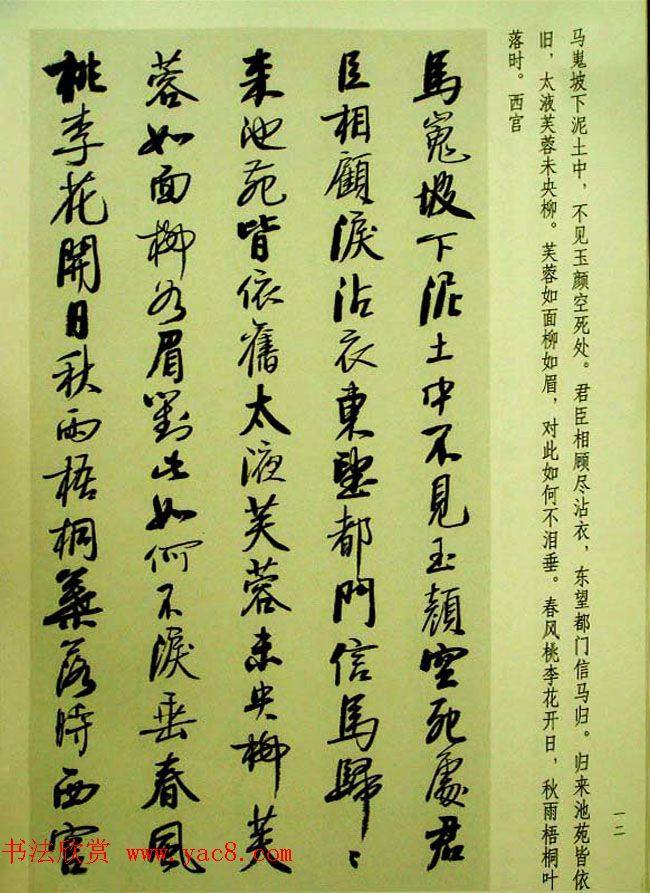 马嵬坡下泥土中，不见玉颜空死处。君臣相顾尽沾衣，东望都门信马归。归来池苑皆依
旧，太液芙蓉未央柳。芙蓉如面柳如眉，对此如何不泪垂。春风桃李花开日，秋雨梧桐叶
落时。西宫
馬嵬坡下泥土中不見玉顏空死處君
臣相顧淚沾衣東望都門信馬歸〻
来池苑皆依舊太液芙蓉未央柳芙
蓉如面柳眉對此如何不淚垂春風
桃李花開日秋雨梧桐葉落時西宫
一二
书法欣赏 www.yac8.com